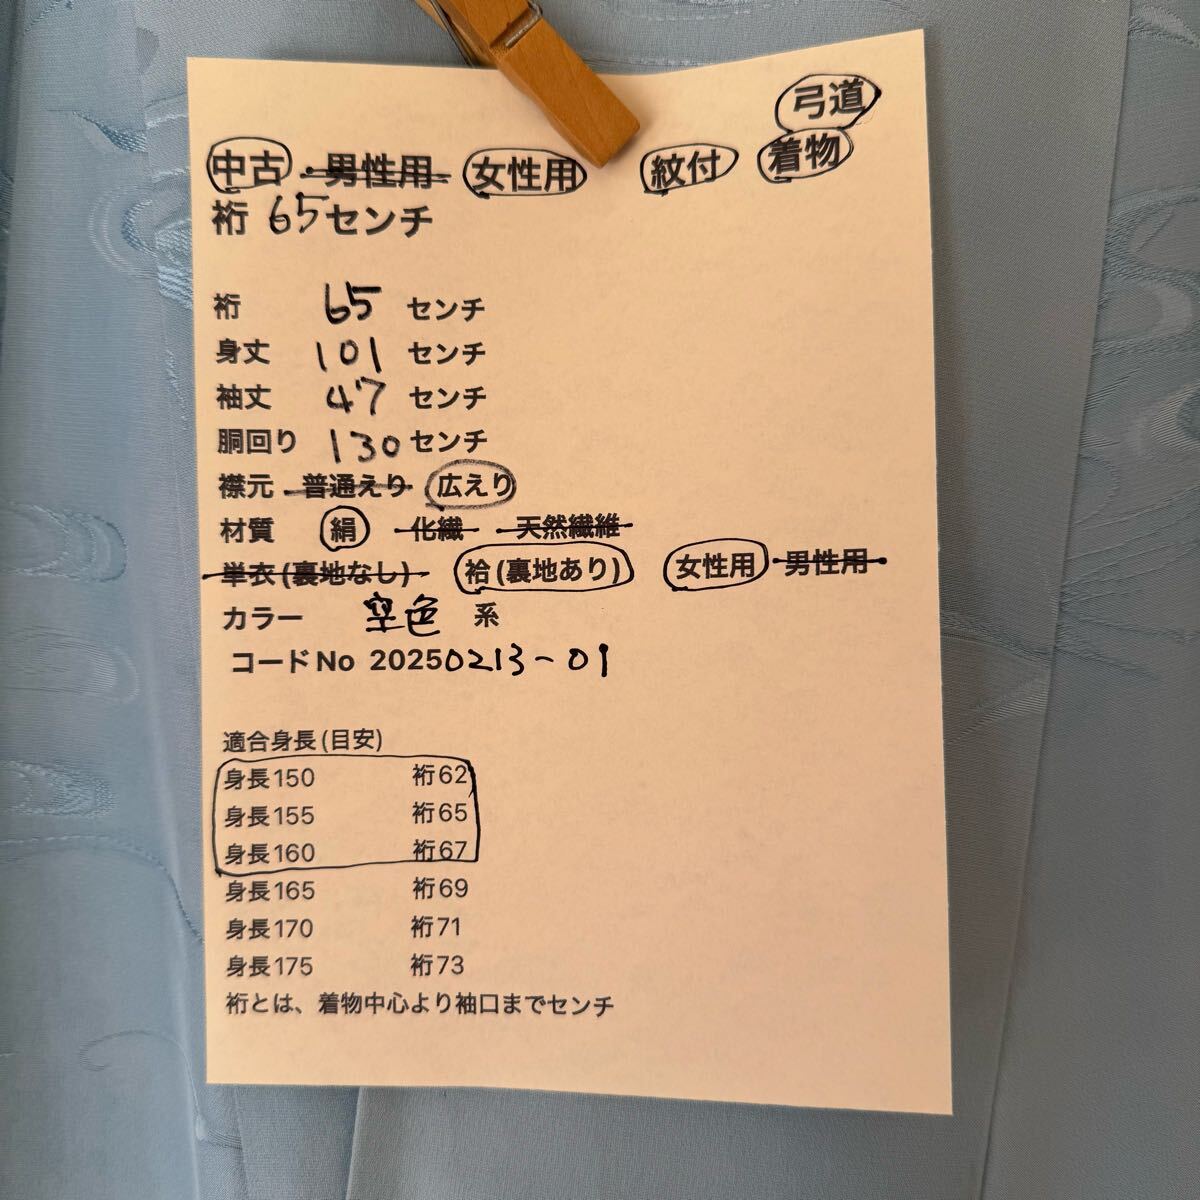 弓道
中古 男性用 女性用 紋付 着物
裄 65センチ
裄 65 センチ
身丈 101 センチ
袖丈 47 センチ
胴回り 130 センチ
襟元 普通えり 広えり
材質 絹 化繊 天然繊維
単衣(裏地なし) 袷(裏地あり) 女性用 男性用
カラー 空色 系
コードNo 20250213-01
適合身長(目安)
身長150 裄62
身長155 裄65
身長160 裄67
身長165 裄69
身長170 裄71
身長175 裄73
裄とは、着物中心より袖口までセンチ